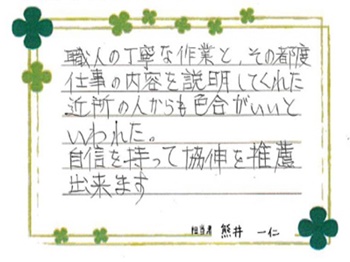 職人の丁寧な作業と、その都度
仕事の内容を説明してくれた
近所の人からも色合がいいと
いわれた。
自信を持って協伸を推薦
出来ます
担当者 熊井 一仁